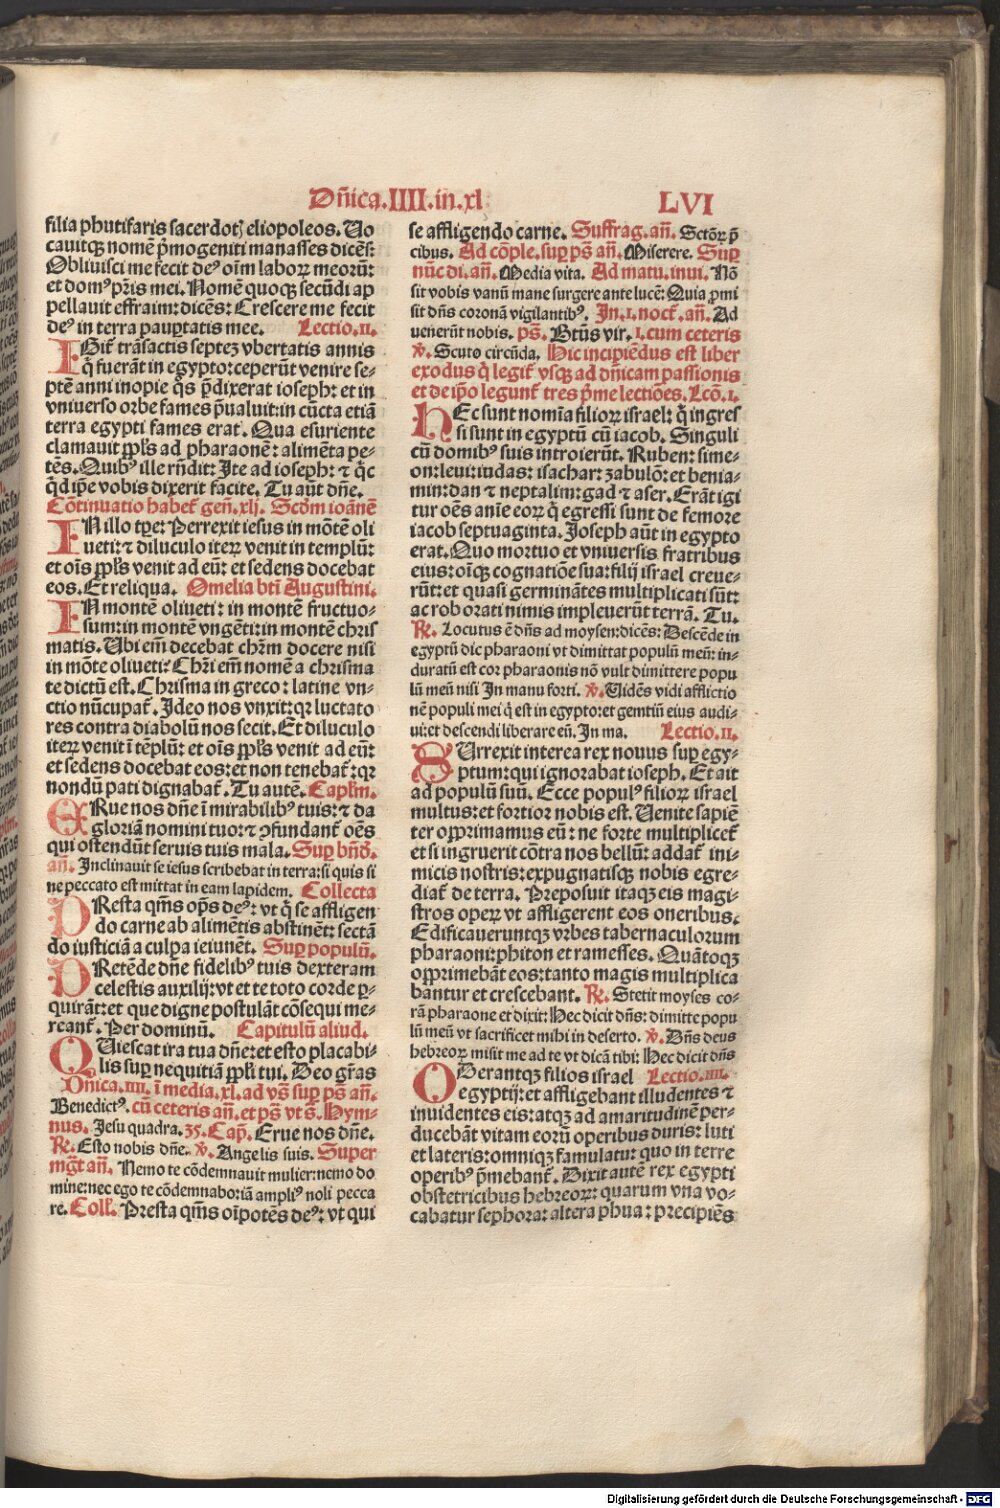 Dn̄ica.IIII.in.xl LVI
filia phutifaris sacerdotꝭ eliopoleos. Uo
cauitqꝫ nomē p̄mogeniti manasses dicēs:
Obliuisci me fecit deꝰ oīm laboꝝ meoꝝū:
et domꝰ pr̄is mei. Nomē quoqꝫ secūdi ap
pellauit effraim: dicēs: Crescere me fecit
deꝰ in terra pauꝑtatis mee. Lectio.II.
IGit᷑ trāsactis septeꝫ vbertatis annis
q̄ fuerāt in egypto: ceperūt venire se-
ptē anni inopie q̄s p̄dixerat ioseph: et in
vniuerso orbe fames p̄ualuit: in cūcta etiā
terra egypti fames erat. Qua esuriente
clamauit ꝓpl̄s ad pharaonē: alimēta pe-
tēs. Quibꝰ ille rn̄dit: Ite ad ioseph: ⁊ q̇c
q̇d ip̄e vobis dixerit facite. Tu aūt dn̄e.
Cōtinuatio habet᷑ gen̄.xlj. Scd̄m ioānē
IN illo tꝑe: Perrexit iesus in mōtē oli
ueti: ⁊ diluculo iteꝝ venit in templū:
et oīs ꝓpl̄s venit ad eū: et sedens docebat
eos. Et reliqua. Omelia bt̄i Augustini.
IN montē oliueti: in montē fructuo-
sum: in montē vngēti: in montē chris
matis. Ubi em̄ decebat chr̄m docere nisi
in mōte oliueti: Chr̄i em̄ nomē a chrisma
te dictū est. Chrisma in greco: latine vn-
ctio nūcupat᷑. Ideo nos vnxit: qꝛ luctato
res contra diabolū nos fecit. Et diluculo
iteꝝ venit ī tēplū: et oīs ꝓpl̄s venit ad eū:
et sedens docebat eos: et non tenebat᷑: qꝛ
nondū pati dignabat᷑. Tu autē. Capl̄m.
ERue nos dn̄e ī mirabilibꝰ tuis: ⁊ da
gloriā nomini tuo: ⁊ ꝯfundant᷑ oēs
qui ostendūt seruis tuis mala. Suꝑ bn̄d̄.
an̄. Inclinauit se iesus scribebat in terra: si quis si
ne peccato est mittat in eam lapidem. Collecta
PResta qm̄s op̄s deꝰ: vt q̄ se affligen
do carne ab alimētis abstinēt: sectā
do iusticiā a culpa ieiunēt. Suꝑ populū.
PRetēde dn̄e fidelibꝰ tuis dexteram
celestis auxilij: vt et te toto corde ꝑ-
quirāt: et que digne postulāt cōsequi me-
reant᷑. Per dominū. Capitulū aliud.
QUiescat ira tua dn̄e: et esto placabi-
lis suꝑ nequitiā ꝓpl̄i tui. Deo gr̄as
Dn̄ica.IIII. ī media.xl. ad vs̄ suꝑ ps̄ an̄.
Benedictꝰ. cū ceteris an̄. et ps̄ vt s̄. Hym-
nus. Jesu quadra. 35. Cap̄. Erue nos dn̄e.
℟. Esto nobis dn̄e. ℣. Angelis suis. Super
mḡt an̄. Nemo te cōdemnauit mulier: nemo do
mine: nec ego te cōdemnabo: iā ampliꝰ noli pecca
re. Coll̄. Presta qm̄s oīpotēs deꝰ: vt qui
se affligendo carne. Suffrag. an̄. Sctōꝝ p̄
cibus. Ad cōple. suꝑ ps̄ an̄. Miserere. Suꝑ
nūc di. an̄. Media vita. Ad matu. inui. Nō
sit vobis vanū mane surgere ante lucē: Quia ꝓmi
sit dn̄s coronā vigilantibꝰ. In.I. noct᷑. an̄. Ad
uenerūt nobis. ps̄. Bt̄us vir. I. cum ceteris
℣. Scuto circūda. Hic incipiēdus est liber
exodus q̄ legit᷑ vsqꝫ ad dn̄icam passionis
et de ip̄o legunt᷑ tres p̄me lectiōes. Lcō.I.
HEc sunt nomīa filioꝝ israel: q̄ ingres
si sunt in egyptū cū iacob. Singuli
cū domibꝰ suis introierūt. Ruben: sime-
on: leui: iudas: isachar: zabulō: et benia-
min: dan ⁊ neptalim: gad ⁊ aser. Erāt igi
tur oēs anīe eoꝝ q̄ egressi sunt de femore
iacob septuaginta. Joseph aūt in egypto
erat. Quo mortuo et vniuersis fratribus
eius: oīqꝫ cognatiōe sua: filij israel creue-
rūt: et quasi germinātes multiplicati sūt:
ac roborati nimis impleuerūt terrā. Tu.
℟. Locutus ē dn̄s ad moysen: dicēs: Descēde in
egyptū dic pharaoni vt dimittat populū meū: in-
duratū est cor pharaonis nō vult dimittere popu
lū meū nisi In manu forti. ℣. Uidēs vidi afflictio
nē populi mei q̄ est in egypto: et gemitū eius audi-
ui: et descendi liberare eū. In ma. Lectio.II.
SUrrexit interea rex nouus suꝑ egy-
ptum: qui ignorabat ioseph. Et ait
ad populū suū. Ecce populꝰ filioꝝ israel
multus: et fortior nobis est. Uenite sapiē
ter opprimamus eū: ne forte multiplicet᷑
et si ingruerit cōtra nos bellū: addat᷑ ini-
micis nostris: expugnatisqꝫ nobis egre-
diat᷑ de terra. Preposuit itaqꝫ eis magi-
stros operꝝ vt affligerent eos oneribus.
Edificaueruntqꝫ vrbes tabernaculorum
pharaoni: phiton et ramesses. Quātoqꝫ
opprimebāt eos: tanto magis multiplica
bantur et crescebant. ℟. Stetit moyses co-
rā pharaone et dixit: Hec dicit dn̄s: dimitte popu
lū meū vt sacrificet mihi in deserto. ℣. Dn̄s deus
hebreoꝝ misit me ad te vt dicā tibi: Hec dicit dn̄s
ODerantqꝫ filios israel Lectio.III.
egyptij: et affligebant illudentes ⁊
inuidentes eis: atqꝫ ad amaritudinē per-
ducebāt vitam eorū operibus duris: luti
et lateris: omniqꝫ famulatu: quo in terre
operibꝰ p̄mebant᷑. Dixit autē rex egypti
obstetricibus hebreoꝝ: quarum vna vo-
cabatur sephora: altera phua: precipiēs
Digitalisierung gefördert durch die Deutsche Forschungsgemeinschaft - DFG